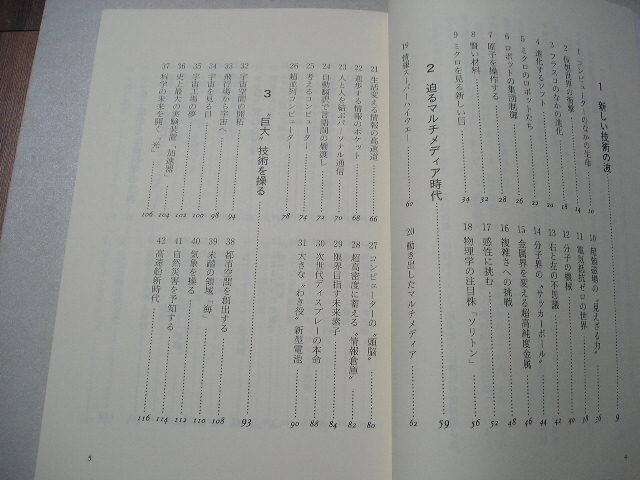 1 新しい技術の波 9
1 コンピューターのなかの生命 10
2 仮想世界の衝撃 14
3 フラスコのなかの進化 18
4 進化するソフト 20
5 ミクロのロボットたち 22
6 ロボットの集団制御 26
7 原子を操作する 28
8 賢い材料 32
9 ミクロを見る新しい目 34
10 超強磁場の〝見えざる力〞 36
11 電気抵抗ゼロの世界 38
12 分子の機械 40
13 右と左の不思議 42
14 分子界の〝サッカーボール〞 44
15 金属界を変える超高純度金属 46
16 複雑さへの挑戦 48
17 感性に挑む 52
18 物理学の注目株「ソリトン」 56
2 迫るマルチメディア時代 59
19 情報スーパー・ハイウエー 60
20 動き出したマルチメディア 62
4
21 生活変える情報の高速道 66
22 進歩する情報のポケット 68
23 人と人を結ぶパーソナル通信 70
24 自動翻訳で言語間の橋渡し 72
25 考えるコンピューター 74
26 超並列コンピューター 78
27 コンピューターの〝頭脳〞 80
28 超高密度に蓄える〝情報倉庫〞 82
29 限界目指す未来素子 84
30 次世代ディスプレーの本命 88
31 大きな〝わき役〞新型電池 90
3 〝巨大〞技術を操る 93
32 宇宙空間の開拓 94
33 飛行場から宇宙へ 98
34 宇宙を見る目 100
35 宇宙工場の夢 102
36 史上最大の実験装置「加速器」 104
37 科学の未来を開く〝光〞 106
38 都市空間を創出する 108
39 未踏の領域「海」 110
40 気象を操る 112
41 自然災害を予知する 114
42 高速船新時代 116
5